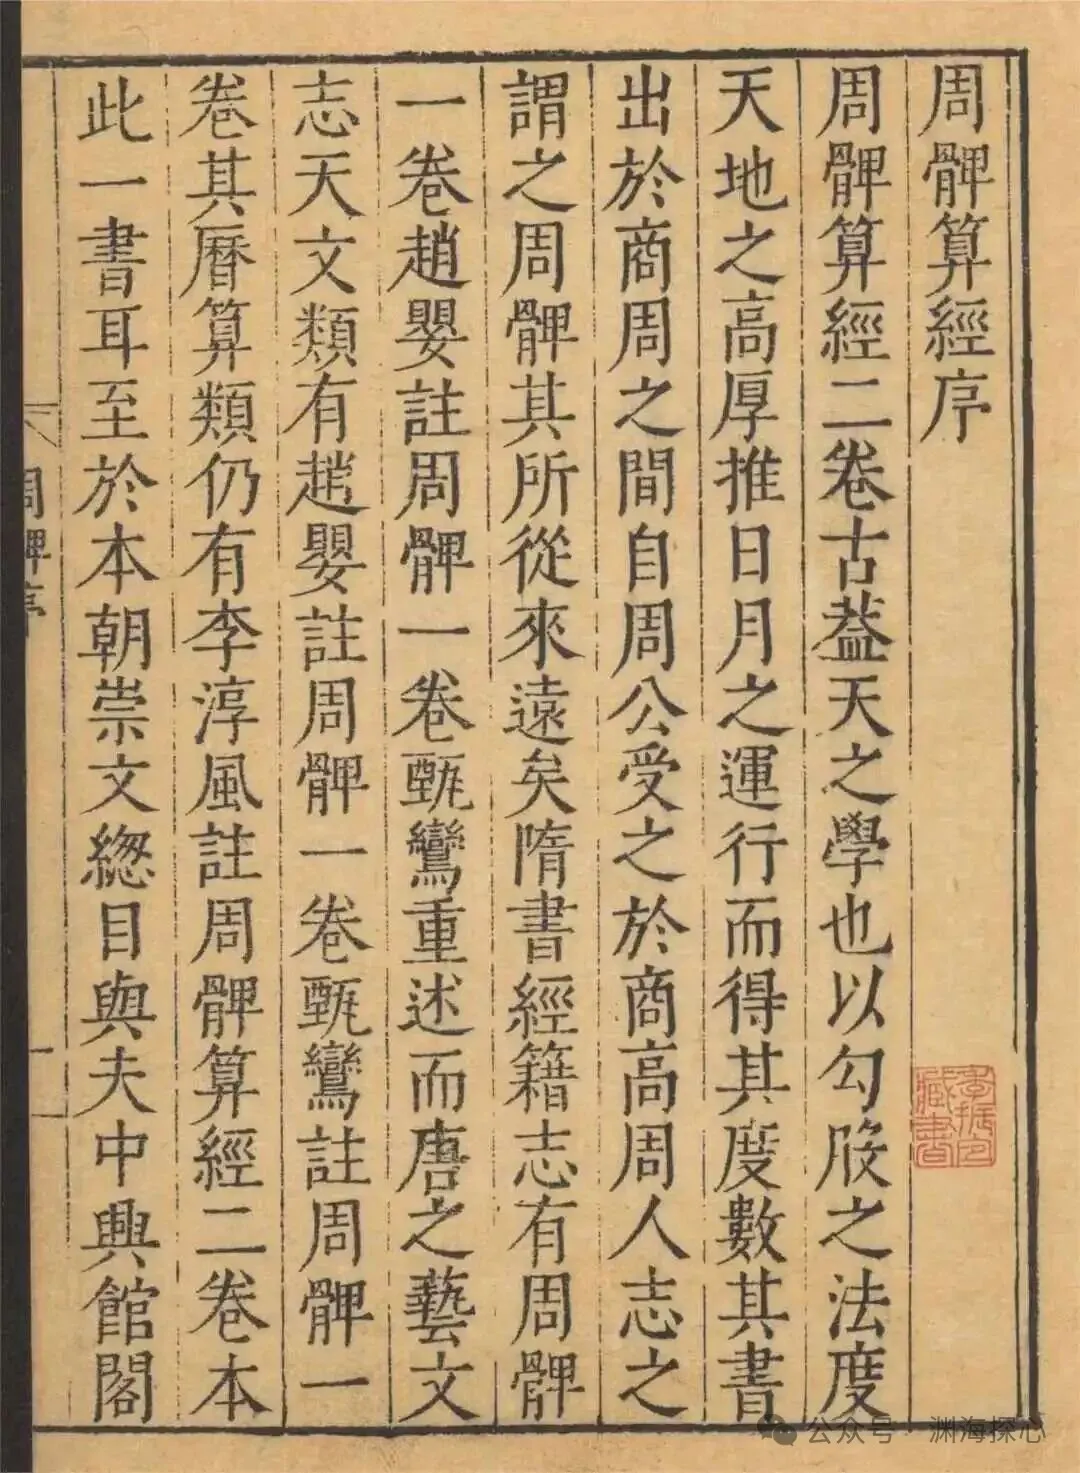 周髀算經序
周髀算經二卷古葢天之學也以勾股之法度
天地之高厚推日月之運行而得其度數其書
出於商周之間自周公受之於商高周人志之
謂之周髀其所從來遠矣隋書經籍志有周髀
一卷趙嬰註周髀一卷甄鸞重述而唐之藝文
志天文類有趙嬰註周髀一卷甄鸞註周髀一
卷其曆算類仍有李淳風註周髀算經二卷本
此一書耳至於本朝崇文總目與夫中興館閣
周髀序
一
藏書
公众号·渊海探心